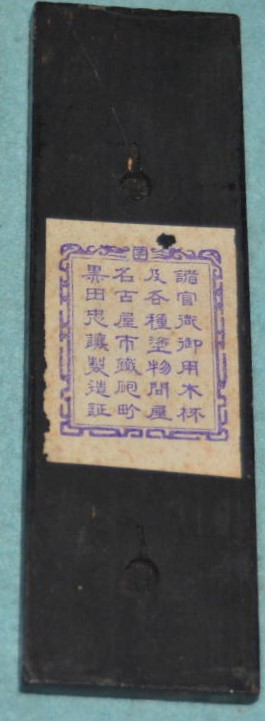 諸官衙御用木杯
及各種塗物問屋
名古屋市鐵砲町
黒田忠譲製造証